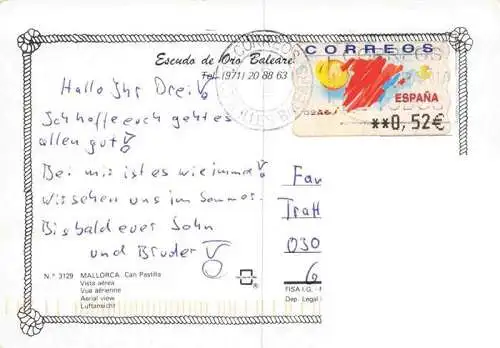 Escudo de Oro Baleare
Tel. (971) 20 88 63
CORREOS
CORREOS
ESPAÑA
**0,52€
Hallo Ihr Drei!
Ich hoffe euch geht es
allen gut!
Bei mir ist es wie immer!
Wir sehen uns im Sommer.
Bis bald euer Sohn
und Bruder!
Fam
Tratt
030
6
N.° 3129 MALLORCA. Can Pastilla
Vista aérea
Vue aérienne
Aerial view
Luftansicht
FISA I.G. -
Dep. Legal